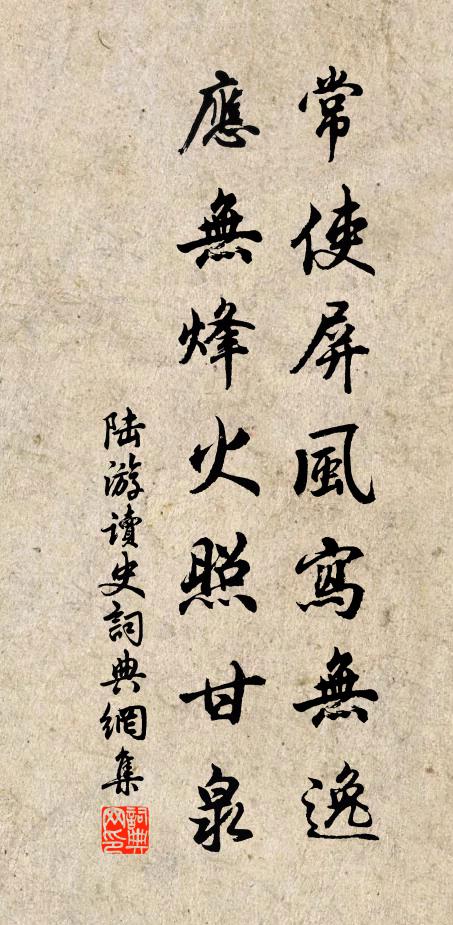 常使屏風寫無逸
應無烽火照甘泉
陸游讀史詞典網集
詞典网印